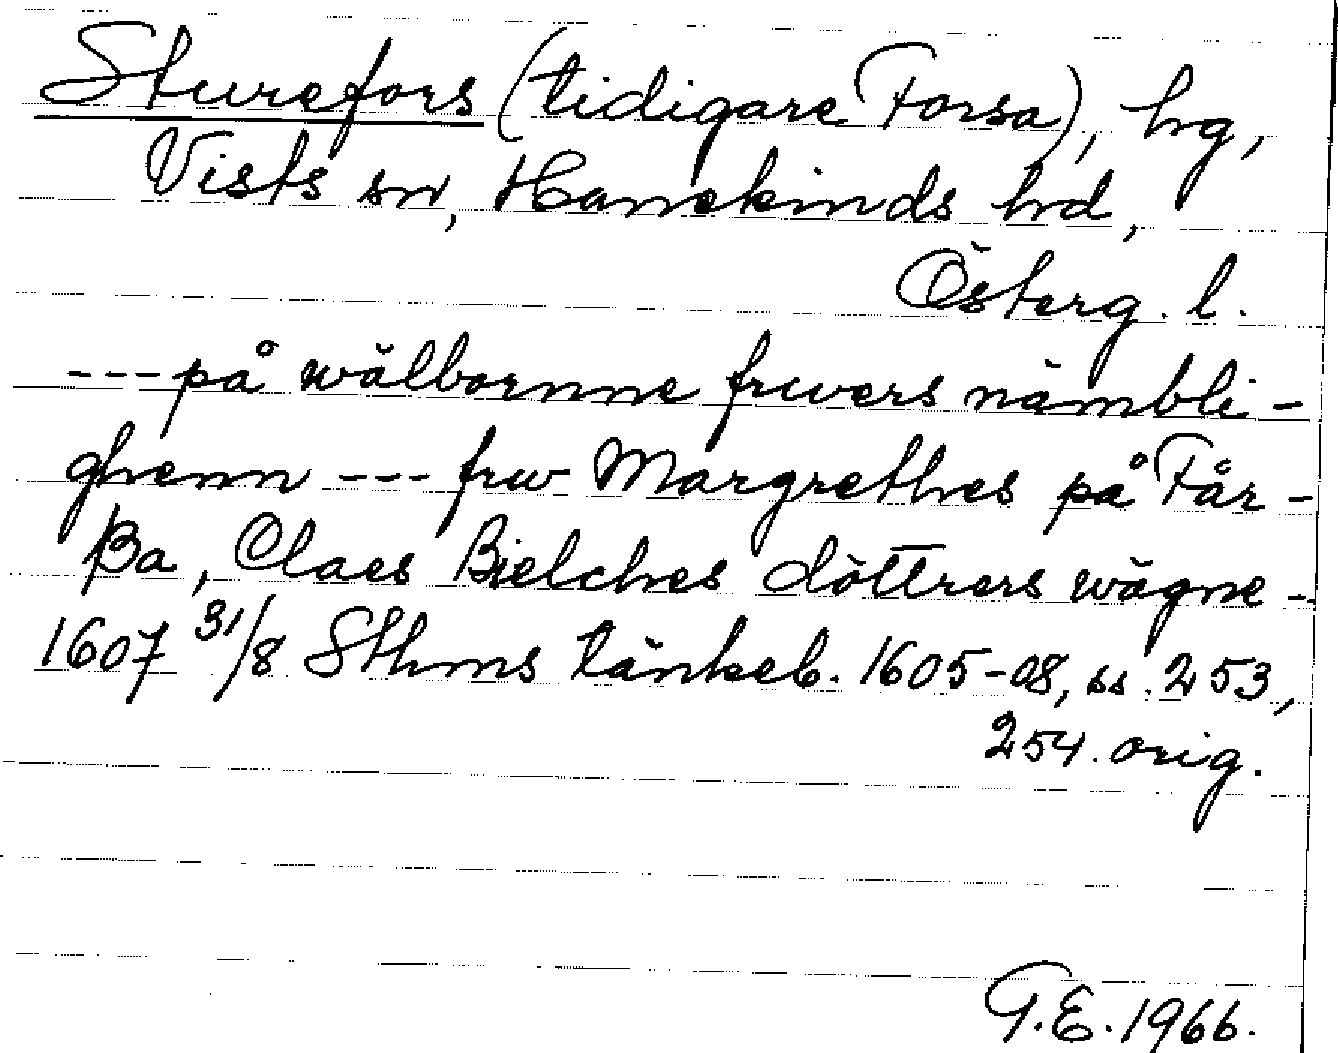 Sturefors (tidigare Forsa), hrg,
Vists sn, Hanekinds hrd,
Österg. l.
--- på wälbornne fruers nämbli-
ghenn --- frw Margrethes på Får-
ßa, Claes Bielches döttrers wägne -
1607 31/8 Sthms tänkeb. 1605-08, ss. 253,
254. orig.
G.E. 1966.